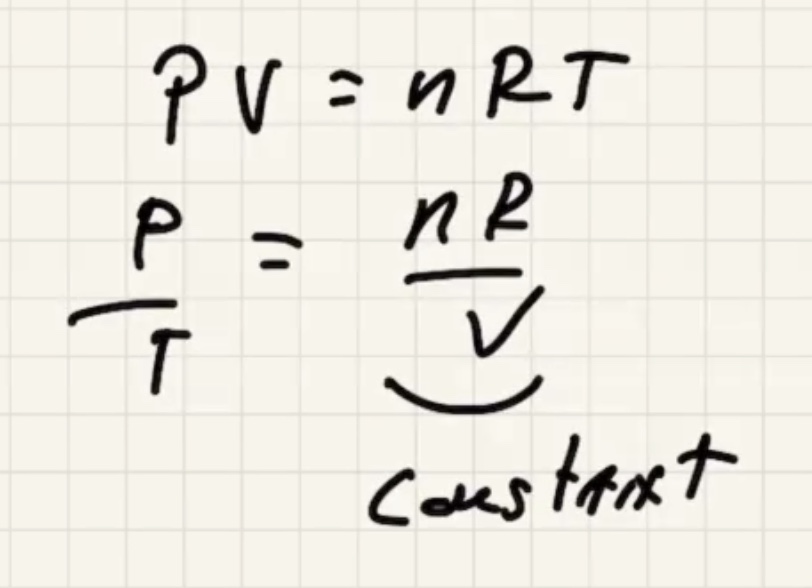 PV = nRT
P/T = nR/V
constant